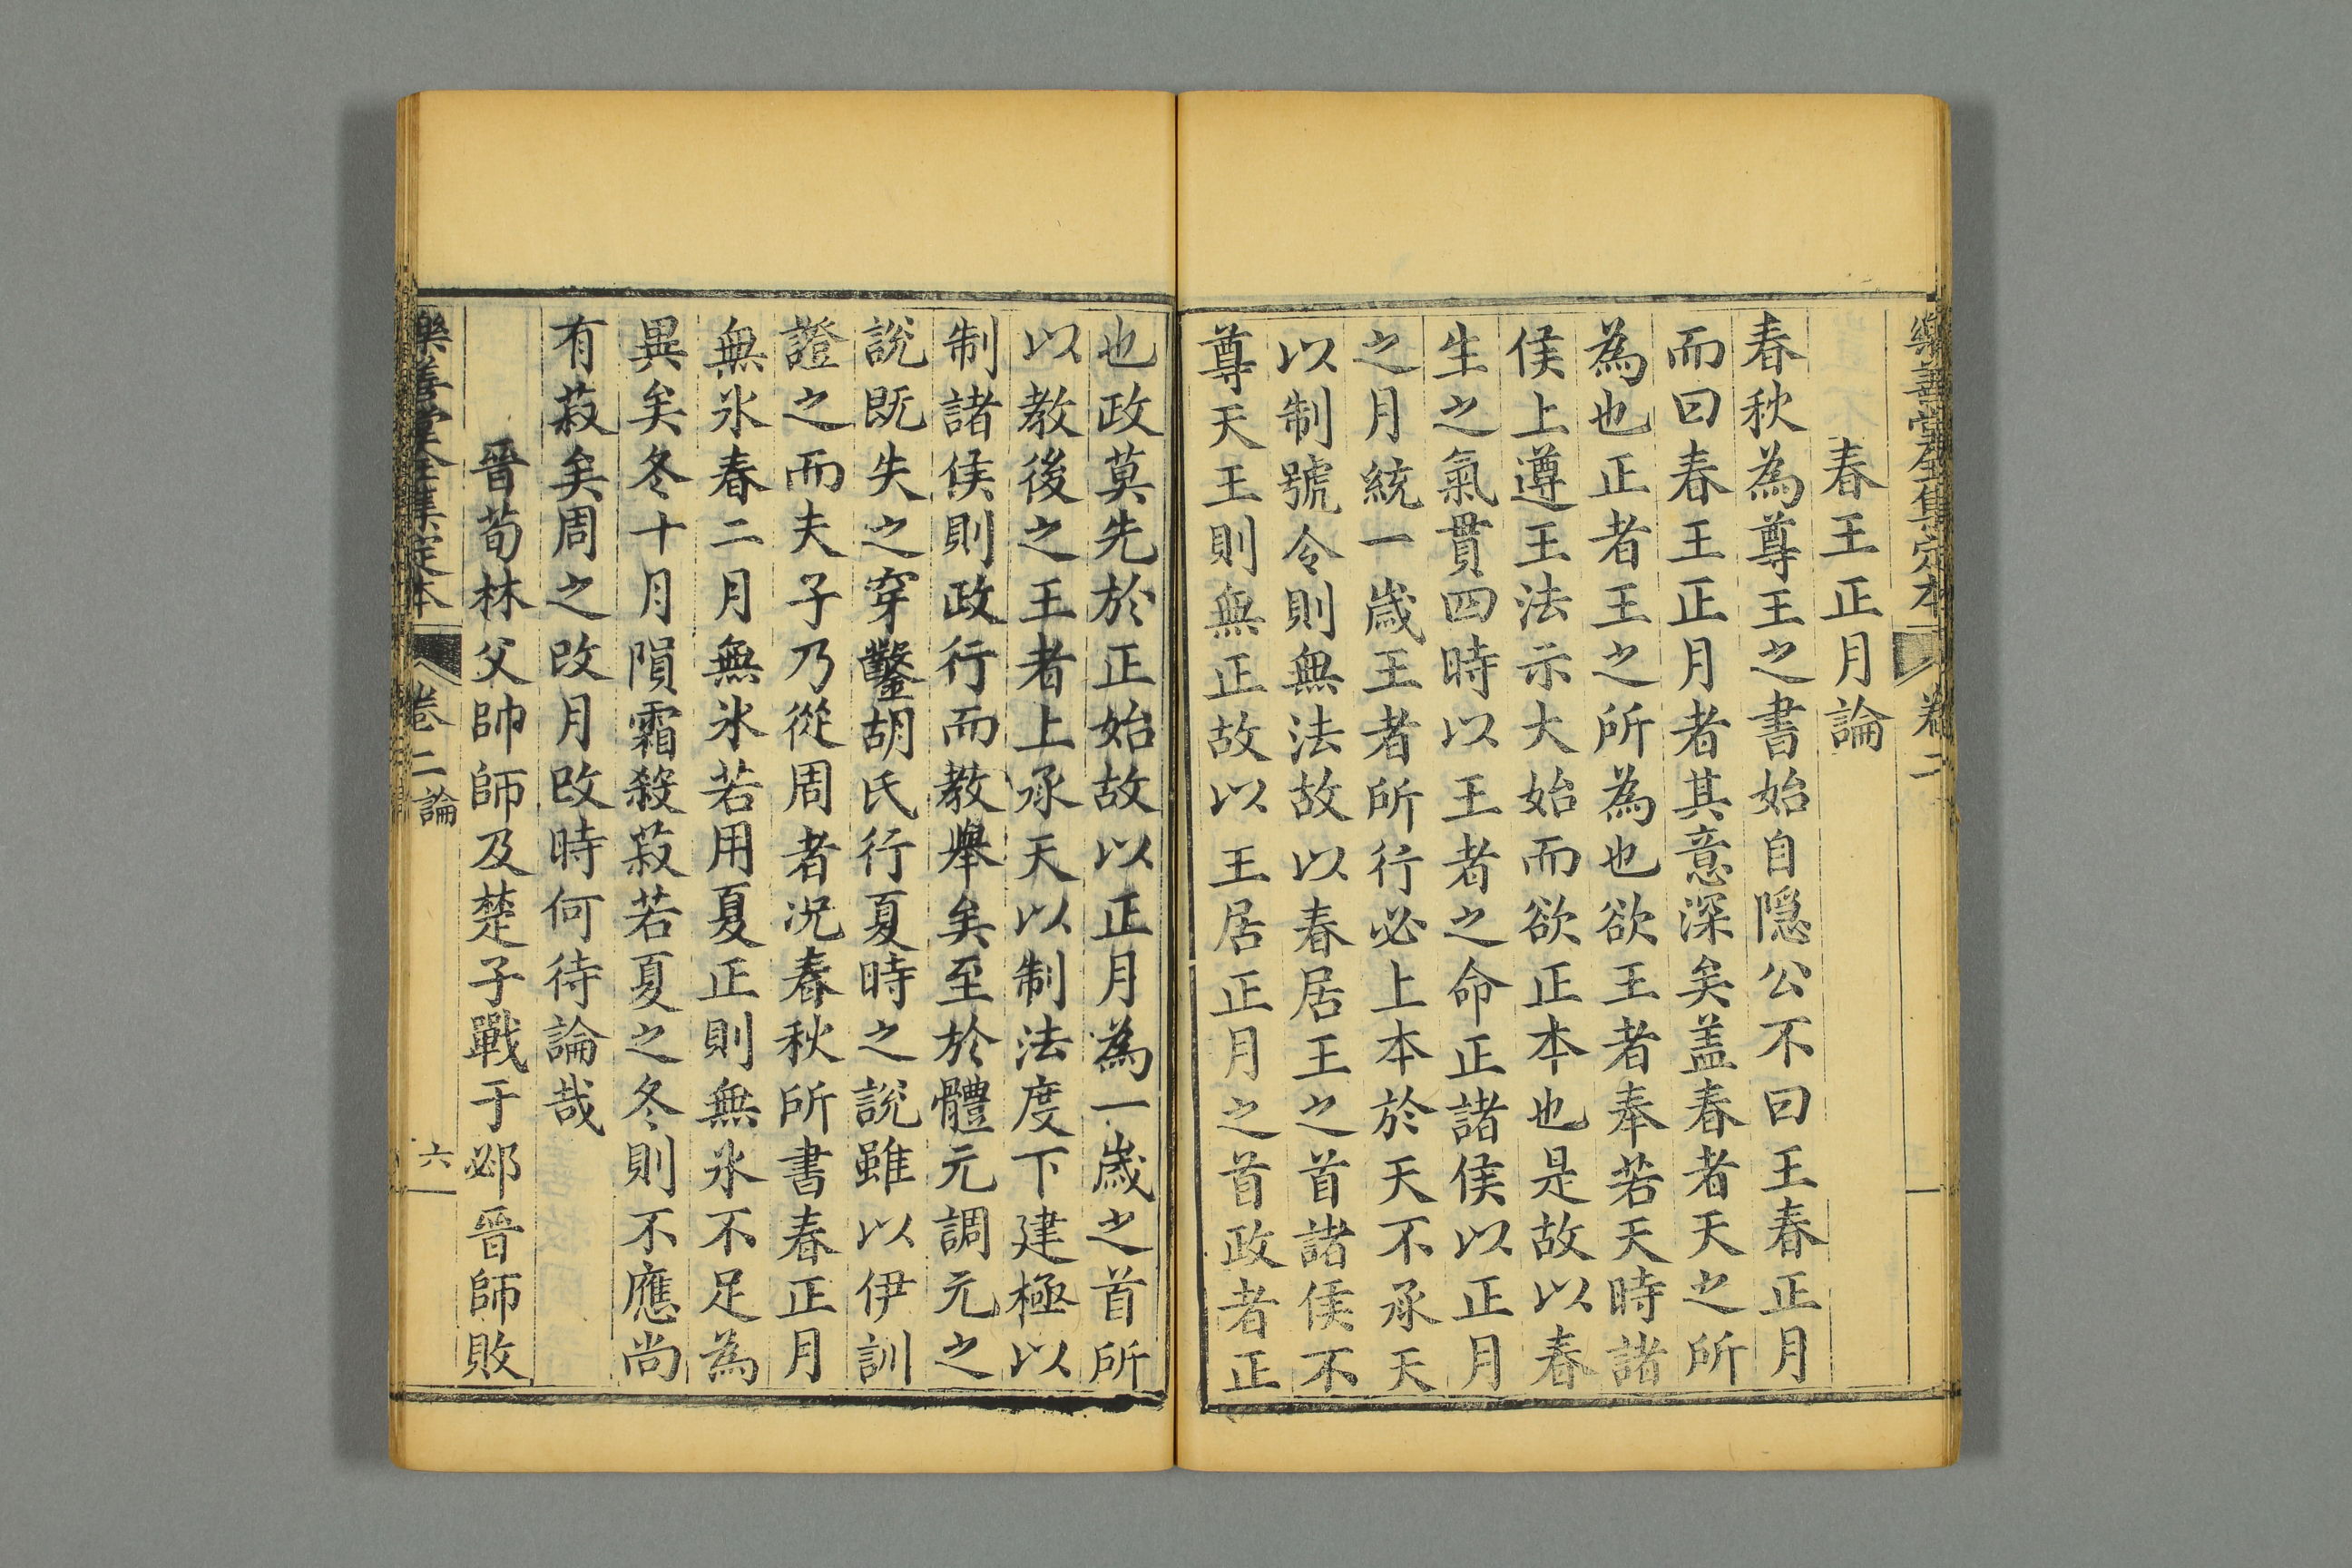 樂善堂全集定本 卷二
春王正月論
春秋為尊王之書始自隱公不曰王春正月
而曰春王正月者其意深矣盖春者天之所
為也正者王之所為也欲王者奉若天時諸
侯上遵王法示大始而欲正本也是故以春
生之氣貫四時以王者之命正諸侯以正月
之月統一歲王者所行必上本於天不承天
以制號令則無法故以春居王之首諸侯不
尊天王則無正故以王居正月之首政者正
也政莫先於正始故以正月為一歲之首所
以教後之王者上承天以制法度下建極以
制諸侯則政行而教舉矣至於體元調元之
說既失之穿鑿胡氏行夏時之說雖以伊訓
證之而夫子乃從周者况春秋所書春正月
無氷春二月無氷若用夏正則無氷不足為
異矣冬十月隕霜殺菽若夏之冬則不應尚
有菽矣周之改月改時何待論哉
晉荀林父帥師及楚子戰于邲晉師敗
樂善堂全集定本 卷二論 六